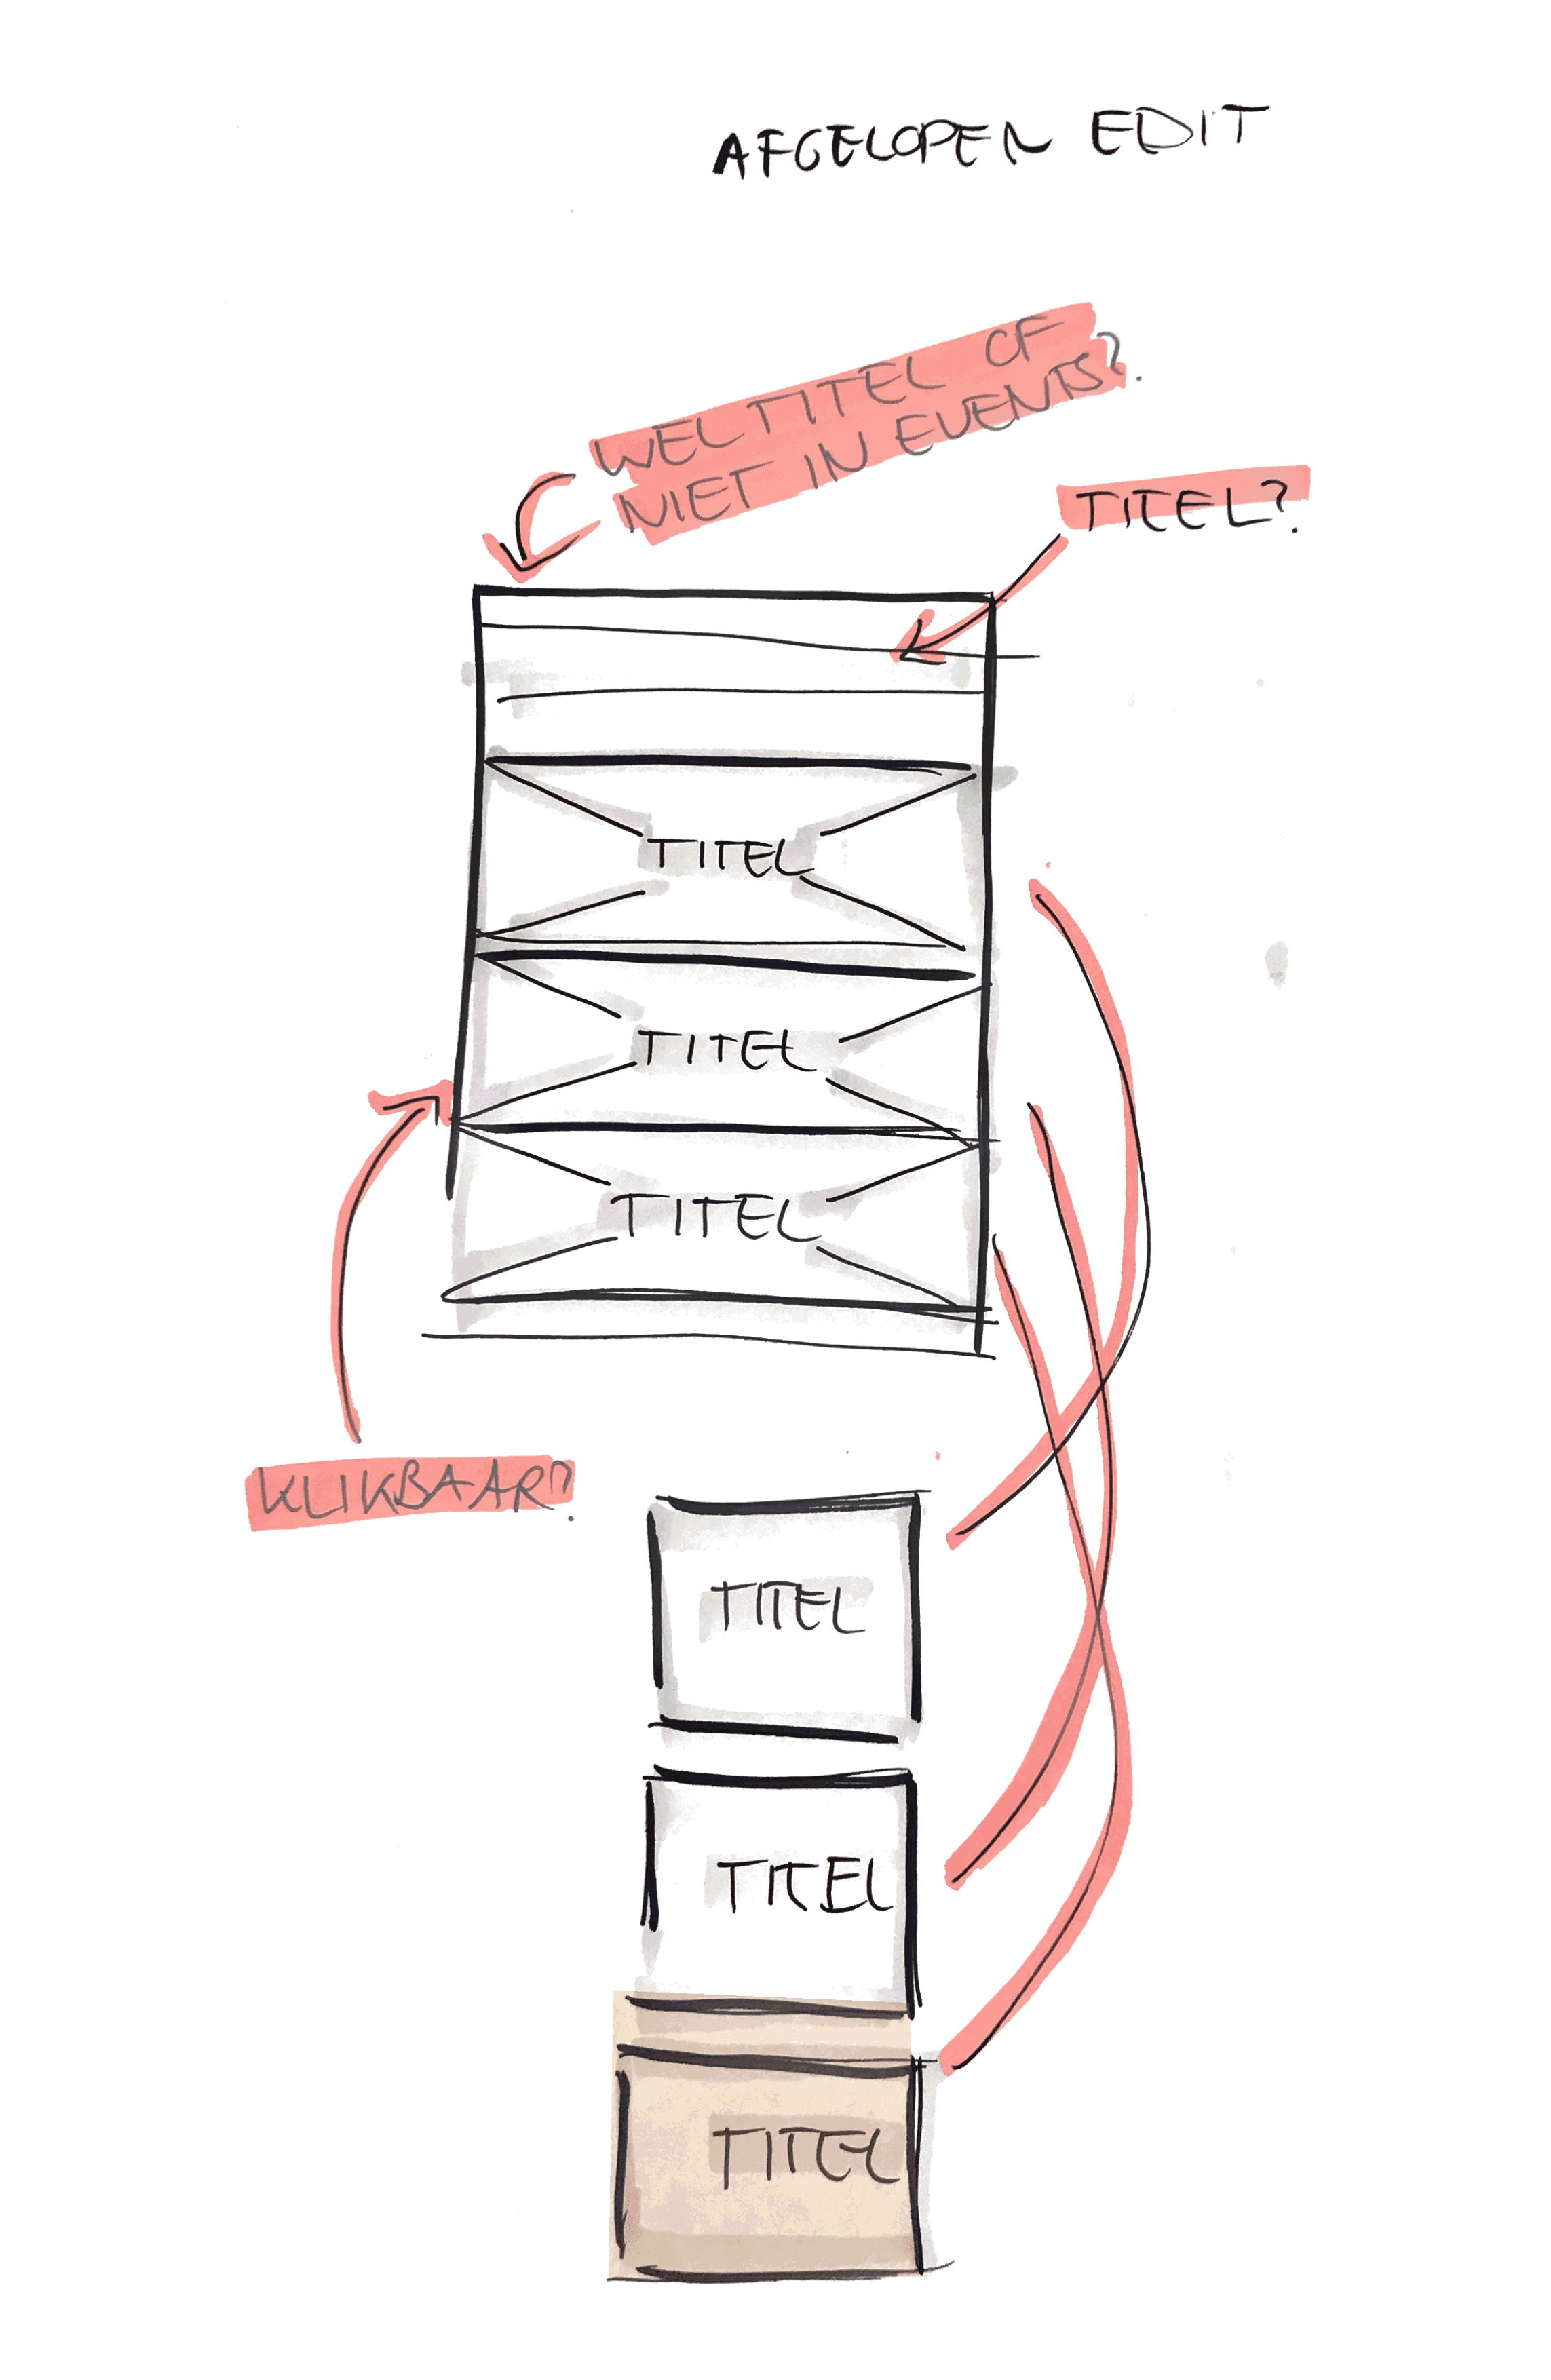 AFGELOPEN EDIT
WEL TITEL OF
NIET IN EVENTS?
TITEL?
TITEL
TITEL
TITEL
KLIKBAAR?
TITEL
TITEL
TITEL